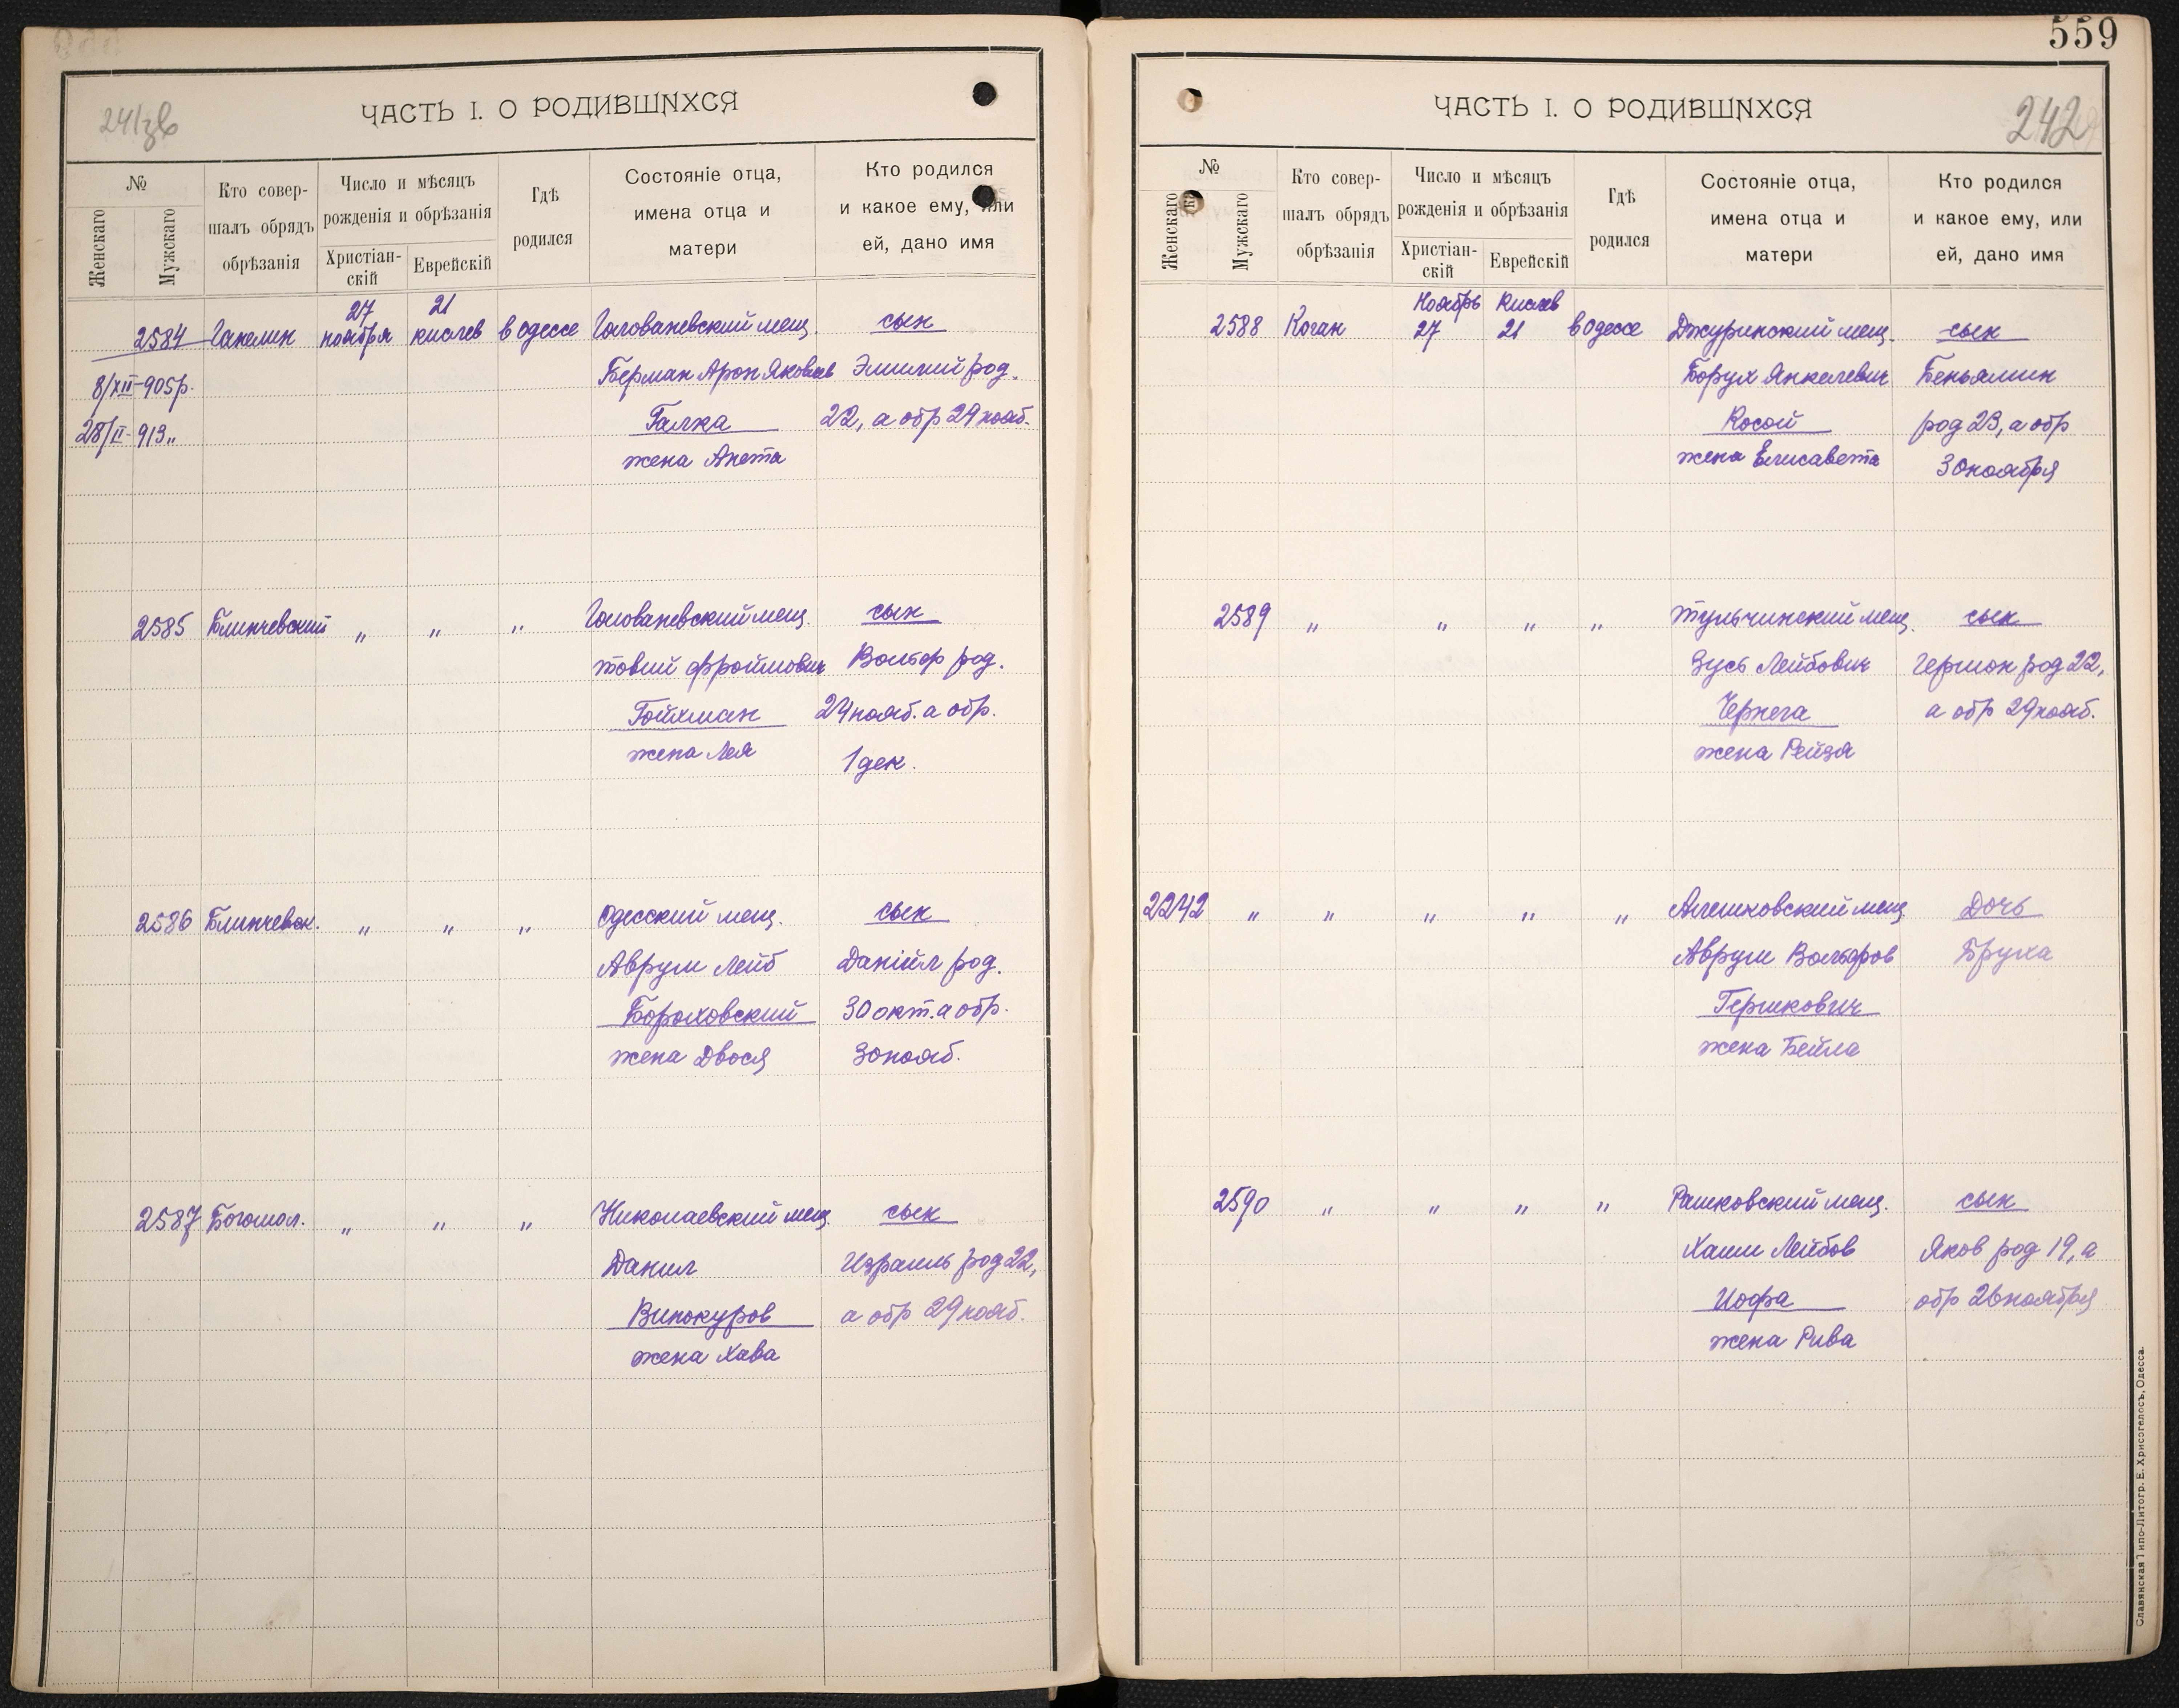 241 зв
ЧАСТЬ I. О РОДИВШИХСЯ
№
Женскаго
Мужскаго
Кто совер-
шалъ обрядъ
обрѣзанія
Число и мѣсяцъ
рожденія и обрѣзанія
Христіан-
скій
Еврейскій
Гдѣ
родился
Состояніе отца,
имена отца и
матери
Кто родился
и какое ему, или
ей, дано имя
27 21
2584 Гакелик ноября кислев в Одессе Голованевский мещ. сын
8/XII-905 р. Берман Арон Яковлев Эммии род.
28/II-913 „ Галка 22, а обр 29 нояб.
жена Анета
2585 Блинчевский „ „ „ Голованевский мещ. сын
Товий Фроймович Вольф род.
Гойхман 24 нояб. а обр.
жена Лея 1 дек.
2586 Блинчевск. „ „ „ Одесский мещ. сын
Аврум Лейб Даніил род.
Бороховский 30 окт. а обр.
жена Двося 30 нояб.
2587 Богомол. „ „ „ Николаевский мещ. сын
Данил Израиль род 22,
Винокуров а обр 29 нояб.
жена Хава
559
ЧАСТЬ I. О РОДИВШИХСЯ
242
№
Женскаго
Мужскаго
Кто совер-
шалъ обрядъ
обрѣзанія
Число и мѣсяцъ
рожденія и обрѣзанія
Христіан-
скій
Еврейскій
Гдѣ
родился
Состояніе отца,
имена отца и
матери
Кто родился
и какое ему, или
ей, дано имя
Ноябрь Кислев
2588 Коган 27 21 в Одессе Джуринский мещ. сын
Борух Янкелевич Беньямин
Косой род 23, а обр
жена Елисавета 30 ноября
2589 „ „ „ „ Тульчинский мещ. сын
Зусь Лейбович Гершон род 22,
Чернега а обр 29 нояб.
жена Рейзя
2242 „ „ „ „ „ Алешковский мещ. Дочь
Аврум Вольфов Бруха
Гершкович
жена Бейла
2590 „ „ „ „ Рашковский мещ. сын
Хаим Лейбов Яков род 19, а
Иофа обр 26 ноября
жена Рива
Славянская Типо-Литогр. Е. Хрисогелосъ, Одесса.